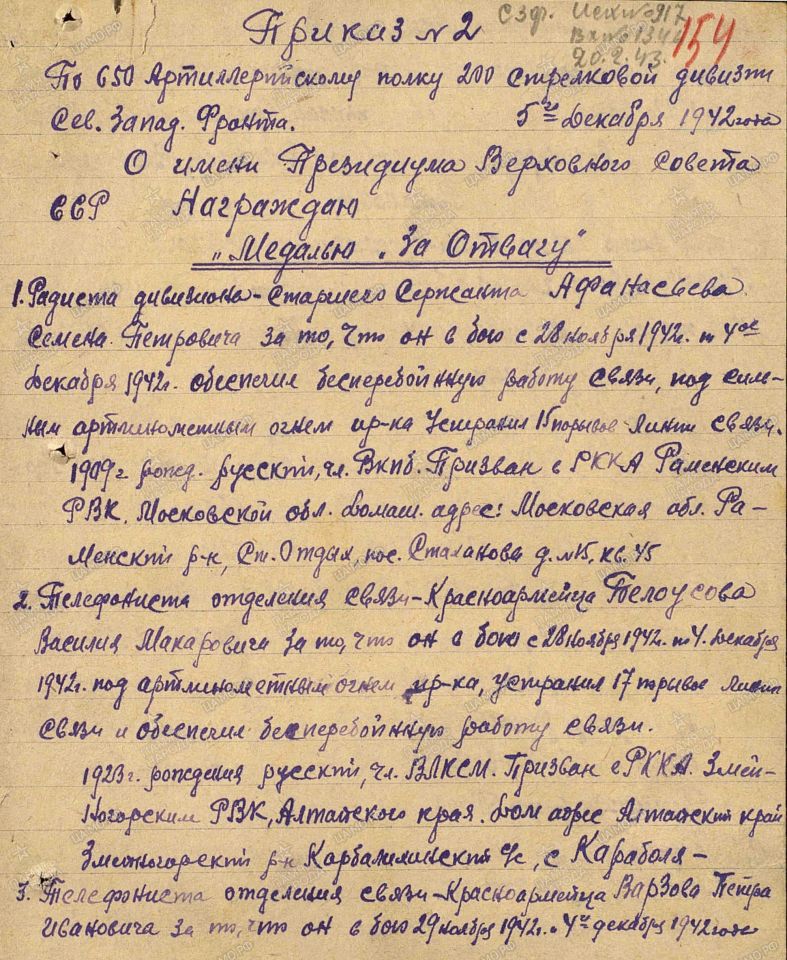 сздр. Исх №917
Вх №1344
20.2.43.
154
Приказ №2
По 650 Артиллерийскому полку 200 стрелковой дивизии
Сев. Запад. Фронта. 5го Декабря 1942 года
О имени Президиума Верховного Совета
ССР Награждаю
„Медалью „За Отвагу"
1. Радиста дивизиона - Старшего Сержанта Афанасьева
Семена Петровича за то, что он в бою с 28 ноября 1942г. по 4ое
Декабря 1942г. обеспечил бесперебойную работу связи, под силь-
ным артминометным огнем пр-ка устранил 15 порывов линии связи.
1909г рожд. русский, чл. Вкпб. Призван в РККА Раменским
РВК. Московской обл. Домаш. адрес: Московская обл. Ра-
менский р-н, Ст. Отдых, пос. Стаханова д. №15, кв. 45
2. Телефониста отделения связи - Красноармейца Белоусова
Василия Макаровича за то, что он в бою с 28 ноября 1942г. по 4. Декабря
1942г. под артминометным огнем пр-ка, устранил 17 порывов линии
связи и обеспечил бесперебойную работу связи.
1923г. рождения русский, чл. ВЛКСМ. Призван в РККА. Змей-
ногорским РВК, Алтайского края. Дом адрес Алтайский край
Змеиногорский р-н Карбалилинский с/с, с Караболя -
3. Телефониста отделения связи - Красноармейца Варзова Петра
Ивановича за то, что он в бою 29 ноября 1942г. и 4го декабря 1942 года